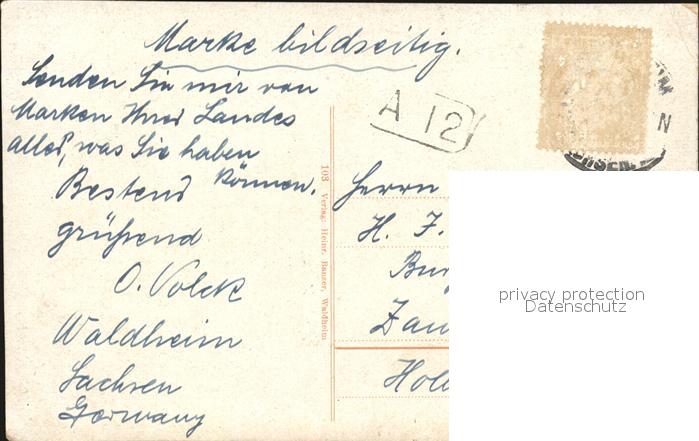 Marke bildseitig.
Senden Sie mir von
Marken Ihres Landes
alles, was Sie haben
können.
Bestend
grüßend
O. Volck
Waldheim
Sachsen
Germany
A 12
103 Verlag: Heinr. Banzer, Waldheim
Herrn
H. J.
Hol
privacy protection
Datenschutz